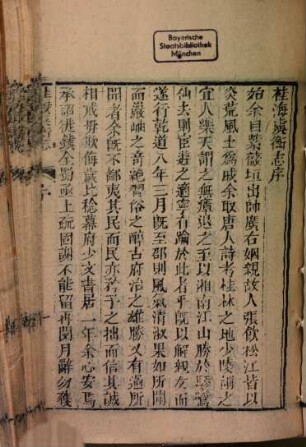 Bayerische
Staatsbibliothek
München
桂海虞衡志序
始余自紫薇垣出帥廣右姻親故人張飲松江皆以
炎荒風土爲戚余取唐人詩考桂林之地少陵謂之
宜人樂天謂之無瘴退之至以湘南江山勝於驂鸞
仙去則宦遊之適寧有踰於此者乎旣以解親友而
遂行乾道八年三月旣至郡則風氣淸淑果如所聞
而巖岫之奇絕習俗之醇古府治之雄勝又有過所
聞者余旣不鄙夷其民而民亦矜予之拙而信其誠
相戒毋欺侮歲比稔幕府少文書居一年余心安焉
承詔徙鎭全蜀亟上疏固謝不能留再閱月辭勿獲